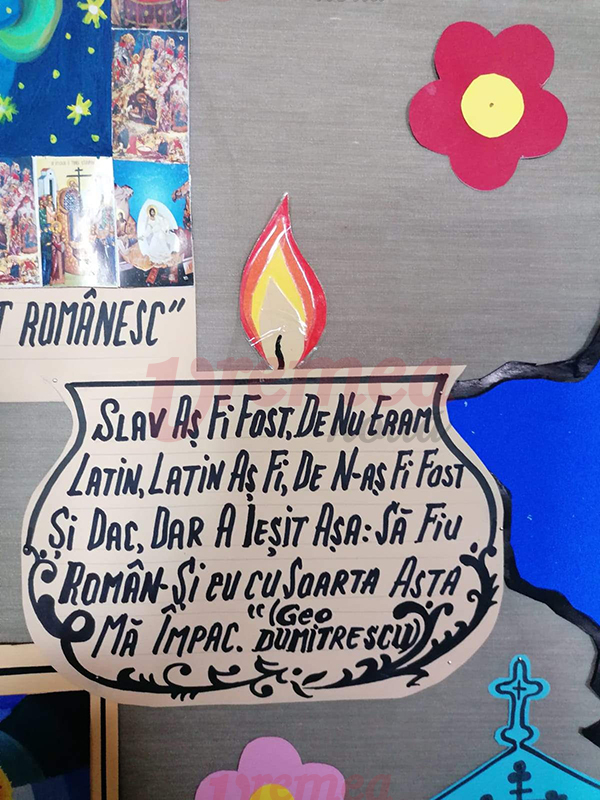 T ROMÂNESC"
Vremea
nouă
SLAV AȘ FI FOST, DE NU ERAM
LATIN, LATIN AȘ FI, DE N-AȘ FI FOST
ȘI DAC, DAR A IEȘIT AȘA: SĂ FIU
ROMÂN-ȘI EU CU SOARTA ASTA
MĂ ÎMPAC." (GEO
DUMITRESCU)
Vremea